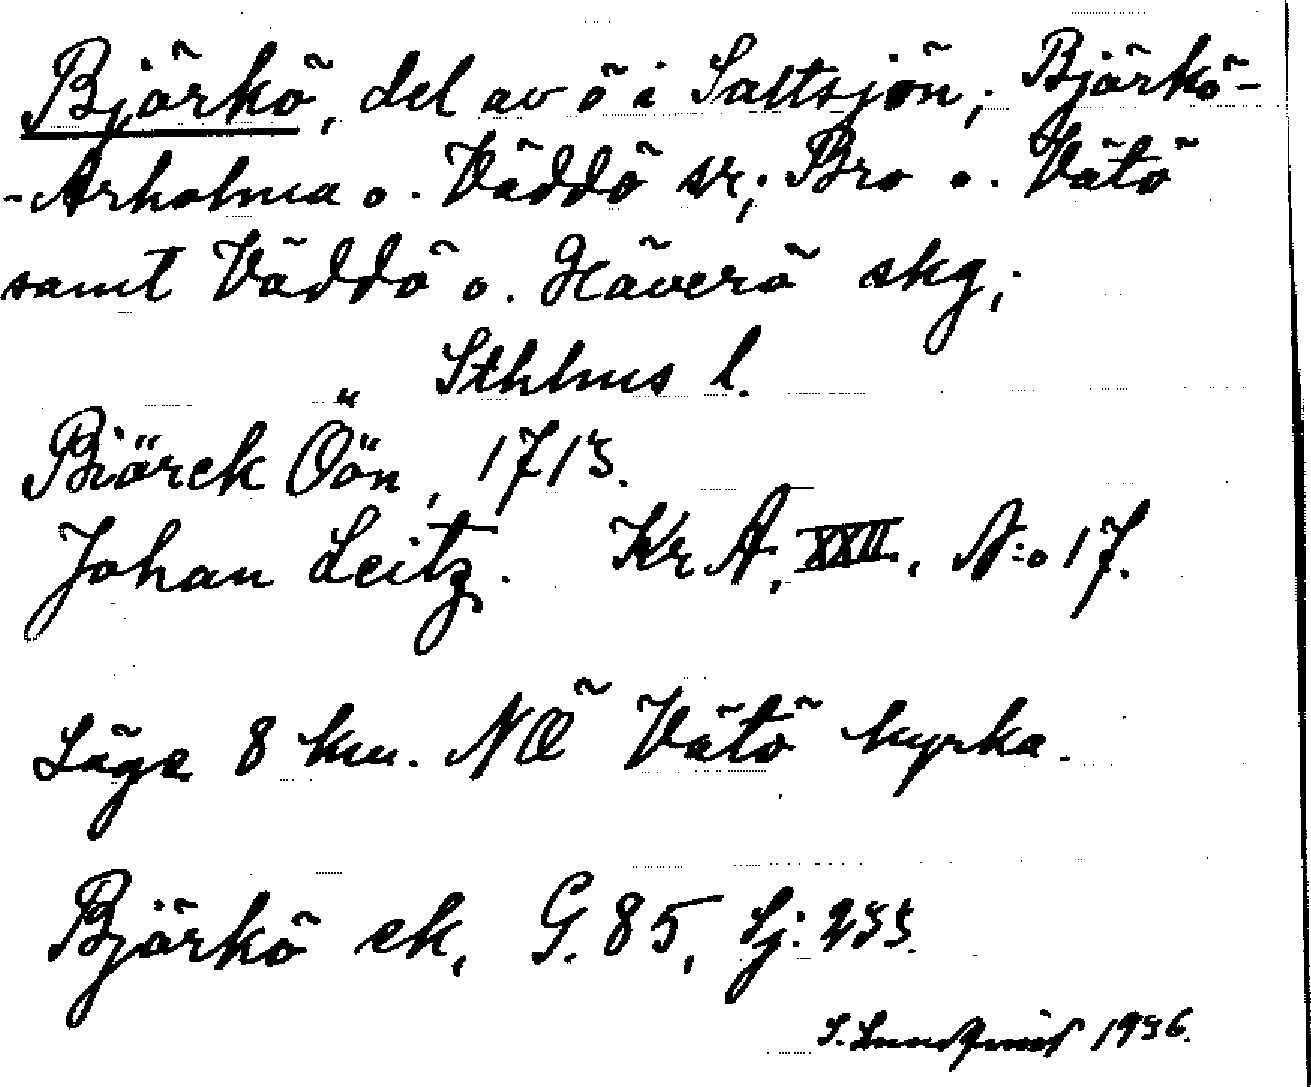 Björkö, del av ö i Saltsjön; Björkö-
-Arholma o. Väddö sn; Bro o. Vätö
samt Väddö o. Häverö skg;
Sthlms l.
Biörck Öön, 1713.
Johan Leitz. Kr A, XXII, N:o 17.
Läge 8 km. NÖ Vätö kyrka.
Björkö ek, G. 85, Sj: 233.
S. Lundqvist 1936.